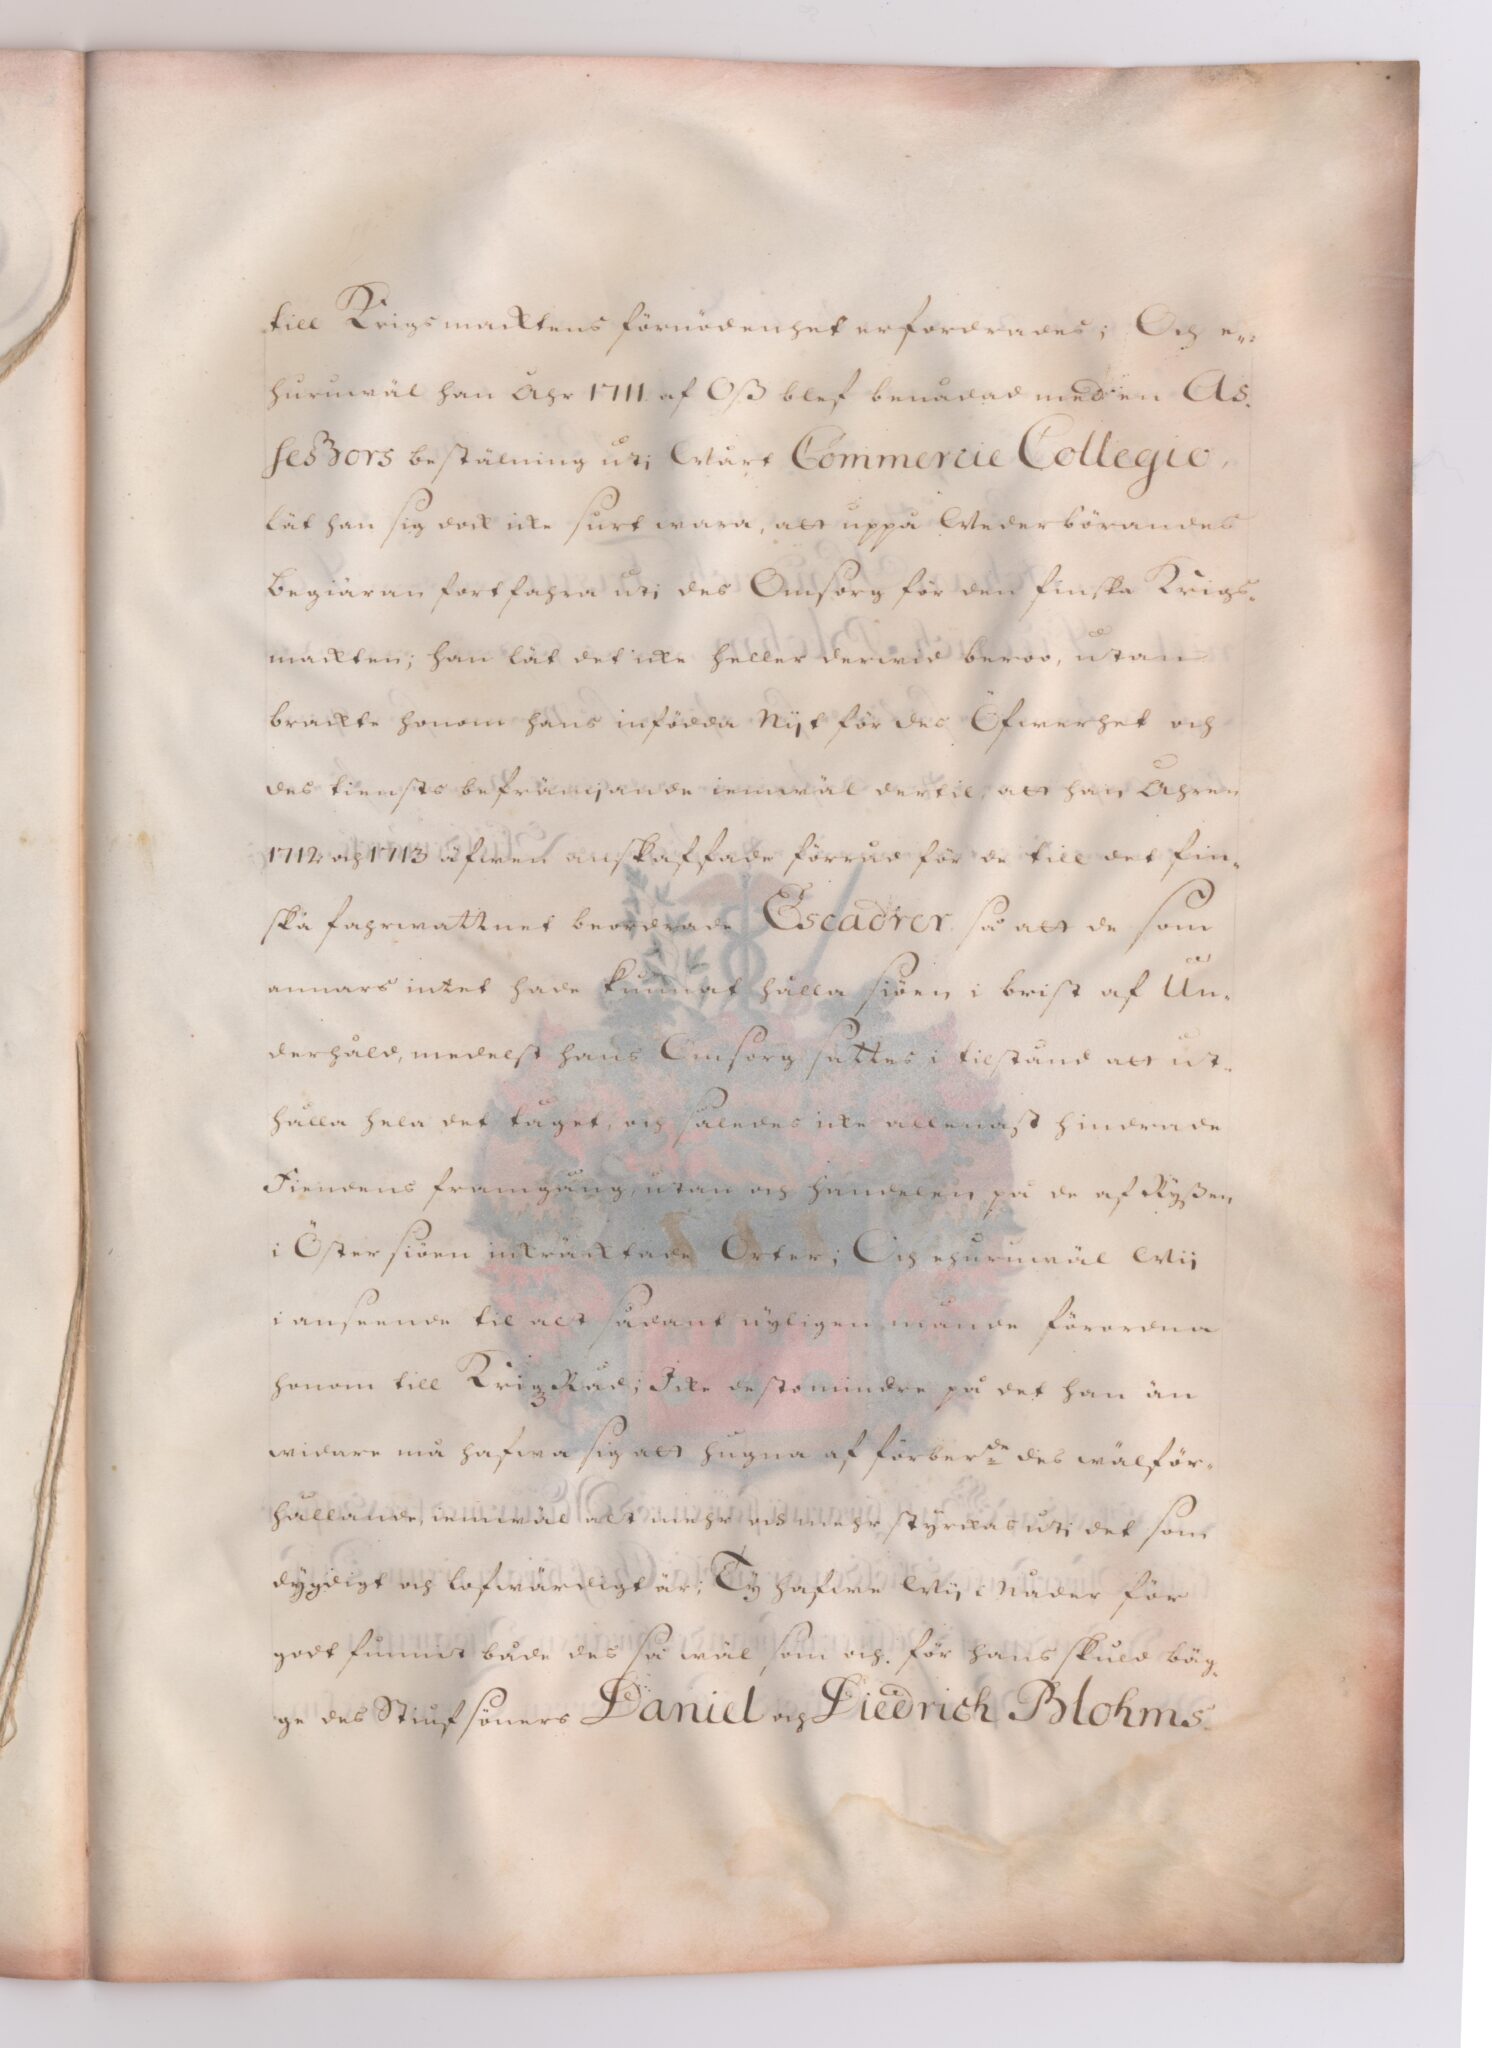 till Krigsmacktens förnödenhet erfordrades; Och e-
huruwäl han Åhr 1711 af Oß blef benådad med en As-
seßors bestälning uti Wårt Commercie Collegio,
lät han sig dock icke surt wara, att uppå Wederbörandes
begiäran fortfahra uti des Omsorg för den finska Krigs-
mackten; han lät det icke heller derwid beroo, utan
brackte honom hans infödda Nijt för des Öfwerhet och
des tiensts befrämjande iemwäl dertil, att han Åhren
1712 och 1713 äfwen anskaffade förråd för de till det fin-
ska fahrwattnet beordrade Escadrer så att de som
annars intet hade kunnat hålla siöen i brist af Un-
derhåld, medelst hans Omsorg sattes i tilstånd att ut-
hålla hela det tåget, och således icke allenast hindrade
Fiendens framgång, utan och handelen på de af Ryßen
i Östersiöen inkräcktade Orter; Och ehuruwäl Wij
i anseende til alt sådant nyligen månde förordna
honom till KrigzRåd; Icke destomindre på det han än
widare må hafwa sig att hugna af förberde des wälför-
hållande, iemwäl alt mehr och mehr styrckas uti det som
dygdigt och lofwärdigt är; Ty hafwe Wij i Nåder för
godt funnit både des så wäl som och för hans skuld bäg-
ge des Stiufsöners Daniel och Diedrich Blohms